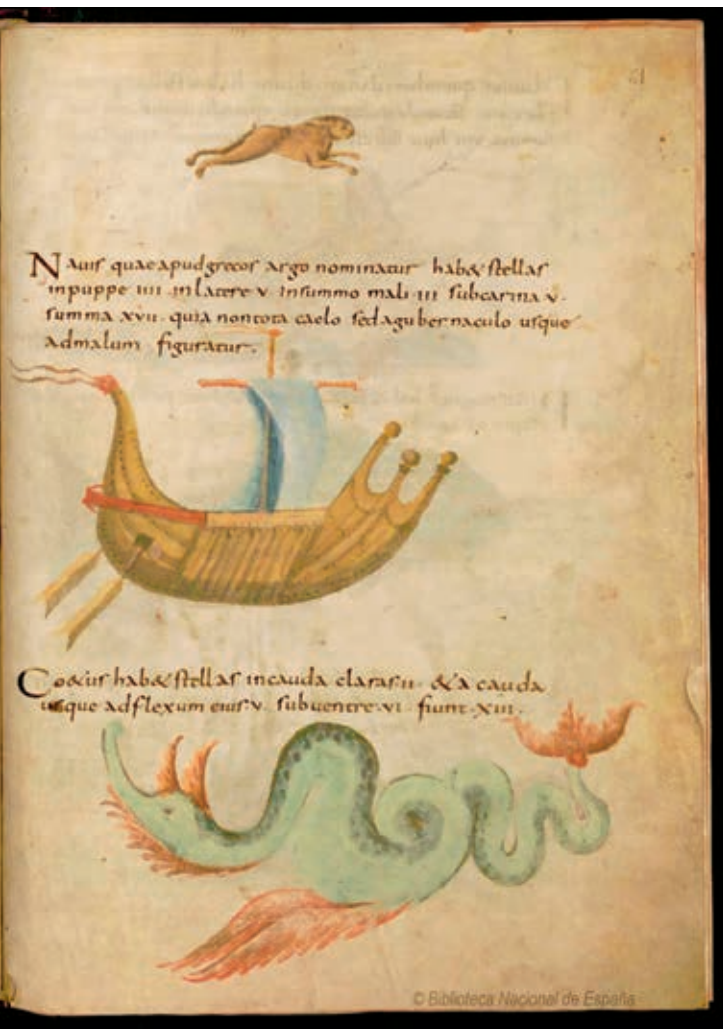 61
Nauis quae apud grecos argo nominatur habet stellas
in puppe iiii in latere v in summo mali iii sub carina v
summa xvii quia non tota caelo sed a gubernaculo usque
ad malum figuratur.
Coetus habet stellas in cauda claras ii et a cauda
usque ad flexum eius v sub uentre vi fiunt xiii
© Biblioteca Nacional de España